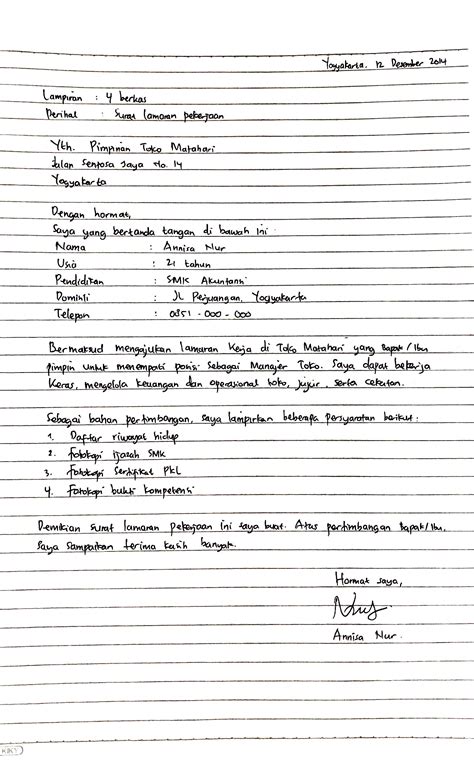 Yogyakarta, 12 Desember 2014
Lampiran : 4 berkas
Perihal : Surat lamaran pekerjaan
Yth. Pimpinan Toko Matahari
Jalan Sentosa Jaya No. 14
Yogyakarta
Dengan hormat,
Saya yang bertanda tangan di bawah ini :
Nama : Annisa Nur
Usia : 21 tahun
Pendidikan : SMK Akuntansi
Domisili : Jl. Perjuangan, Yogyakarta
Telepon : 0851 - 000 - 000
Bermaksud mengajukan lamaran kerja di Toko Matahari yang Bapak/Ibu
pimpin untuk menempati posisi sebagai Manajer Toko. Saya dapat bekerja
keras, mengelola keuangan dan operasional toko, jujur, serta cekatan.
Sebagai bahan pertimbangan, saya lampirkan beberapa persyaratan berikut :
1. Daftar riwayat hidup
2. Fotokopi ijazah SMK
3. Fotokopi sertifikat PKL
4. Fotokopi bukti kompetensi
Demikian surat lamaran pekerjaan ini saya buat. Atas pertimbangan Bapak/Ibu,
saya sampaikan terima kasih banyak.
Hormat saya,
Annisa Nur
KIKY